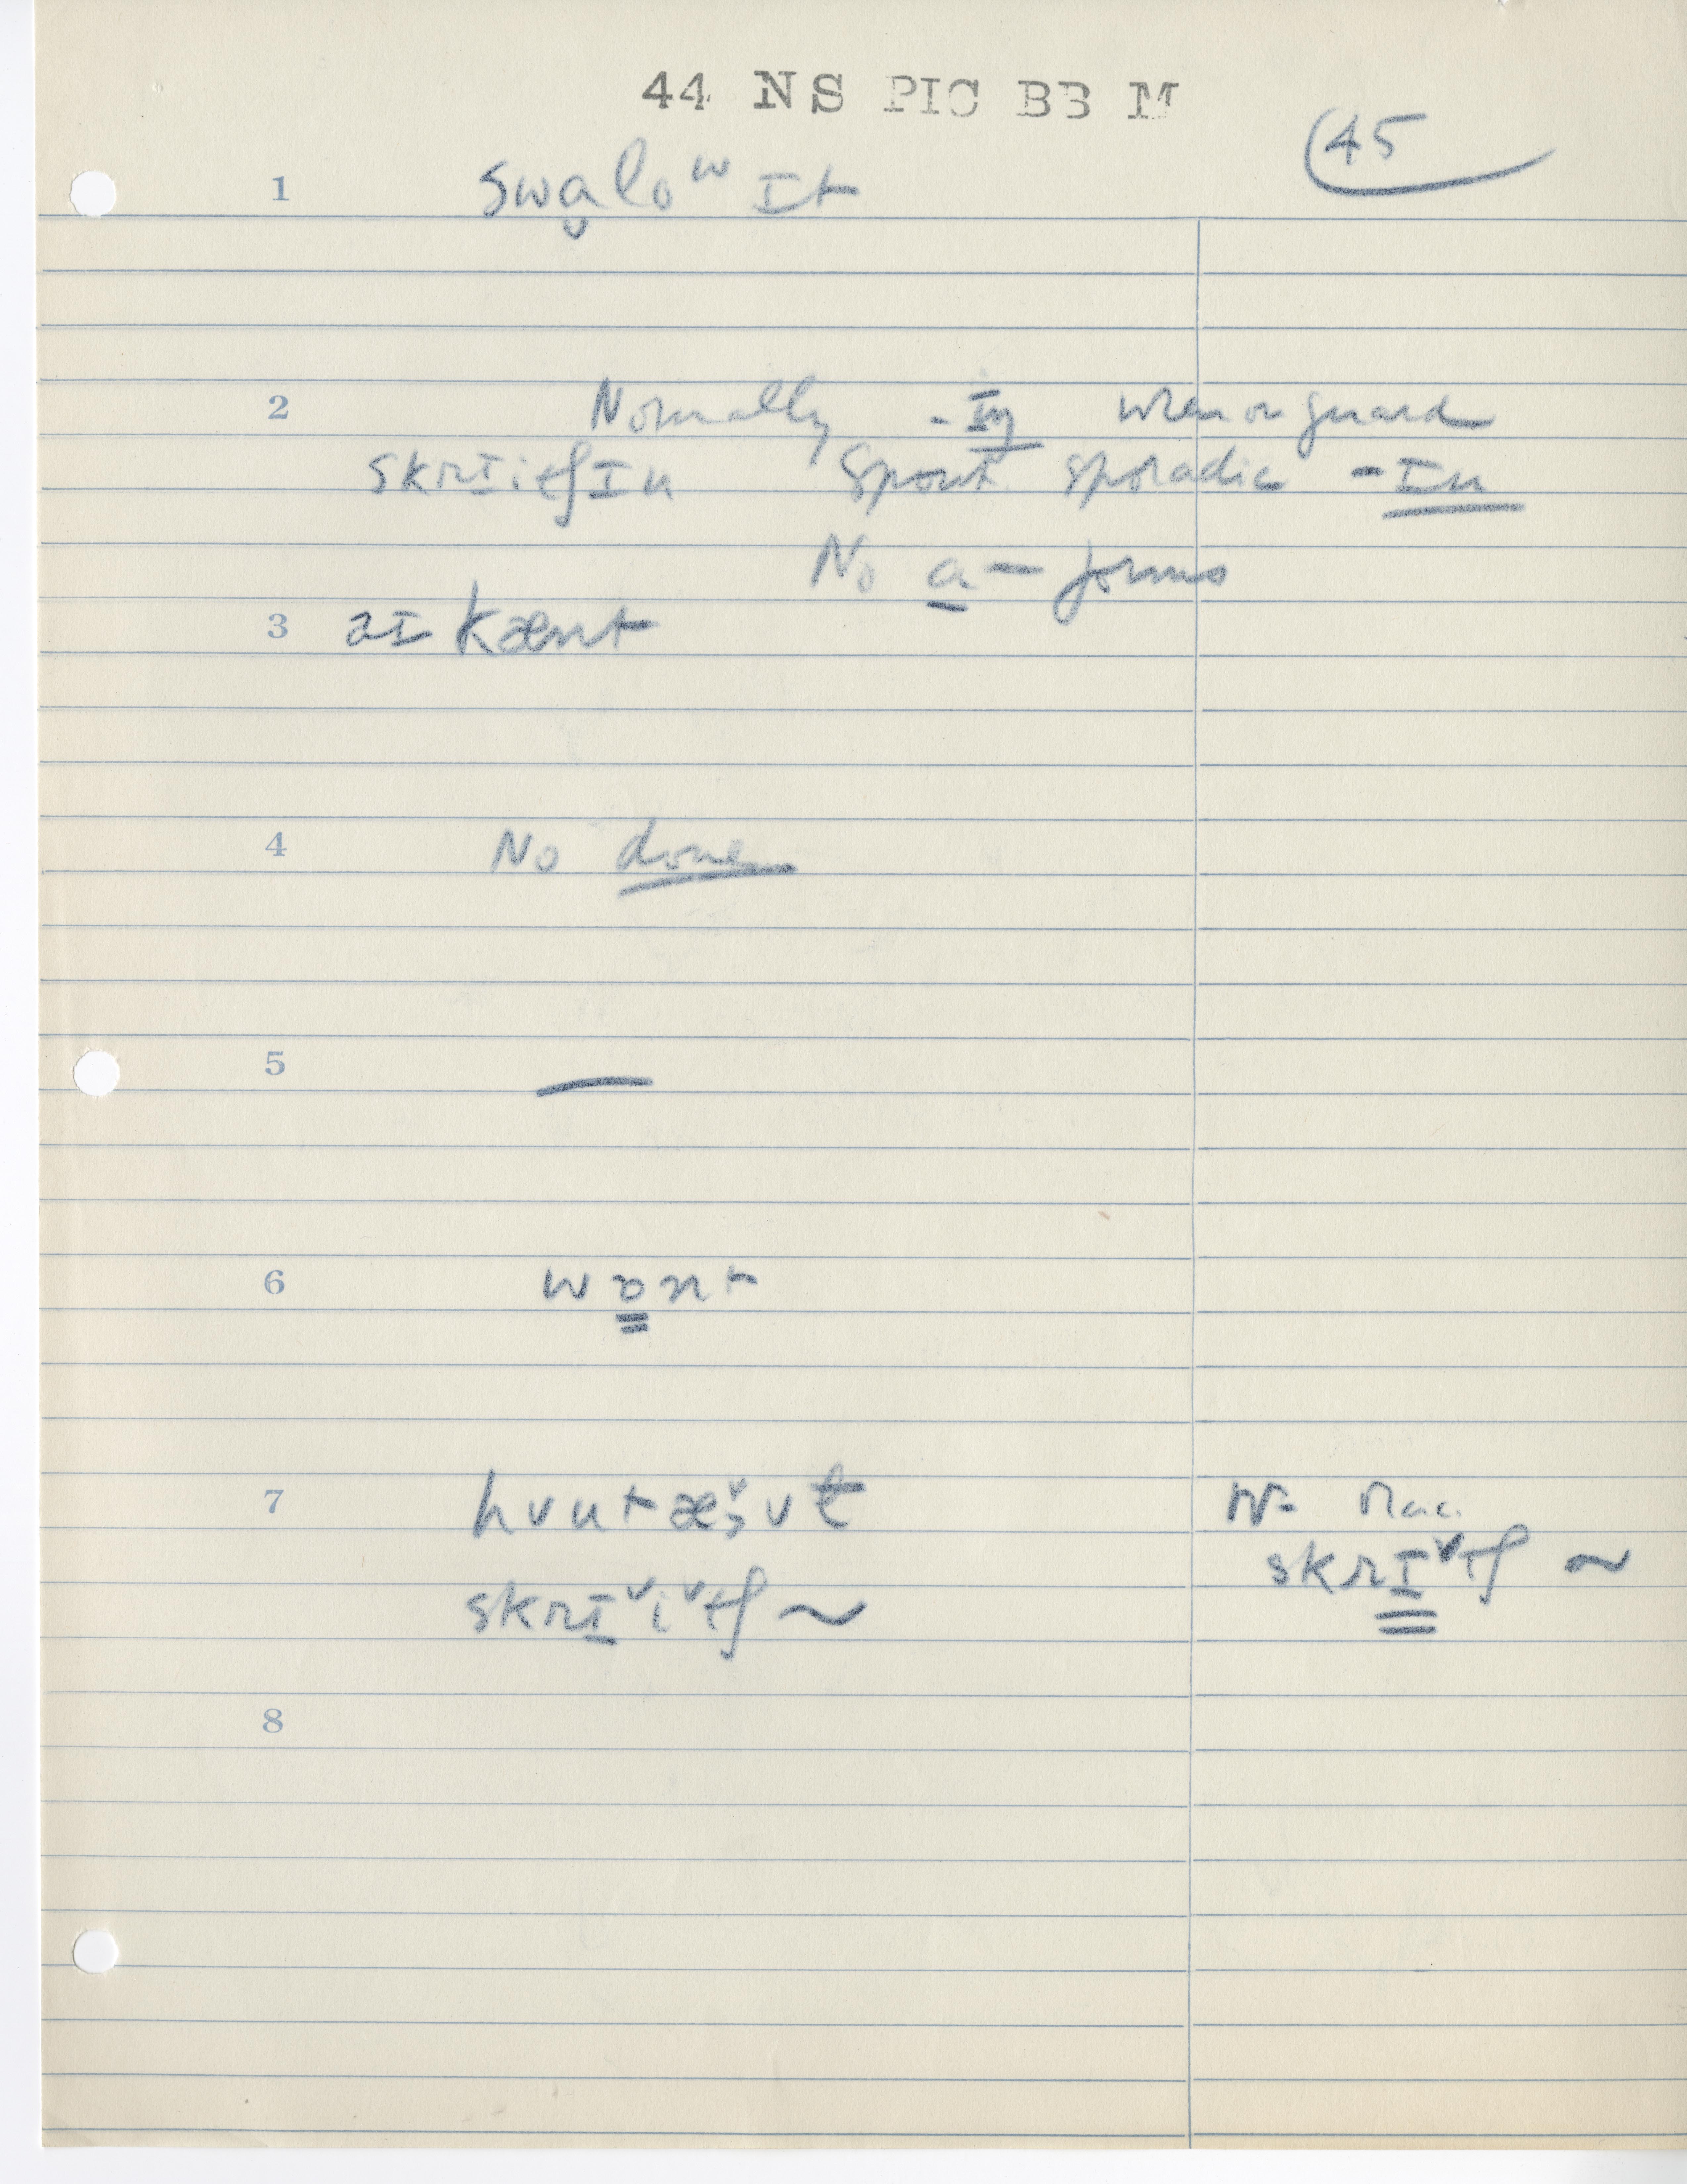 44 NS PIC BB M
45
1 swɑ̬loʷ ɪt
2 Normally -ɪŋ when on guard
skrɪitʃɪn Spont. sporadic -ɪn
No a- forms
3 aɪ kænt
4 No done
5 —
6 wont
7
skrɪ˅i˅tʃ ~
skrɪ˅tʃ ~
8